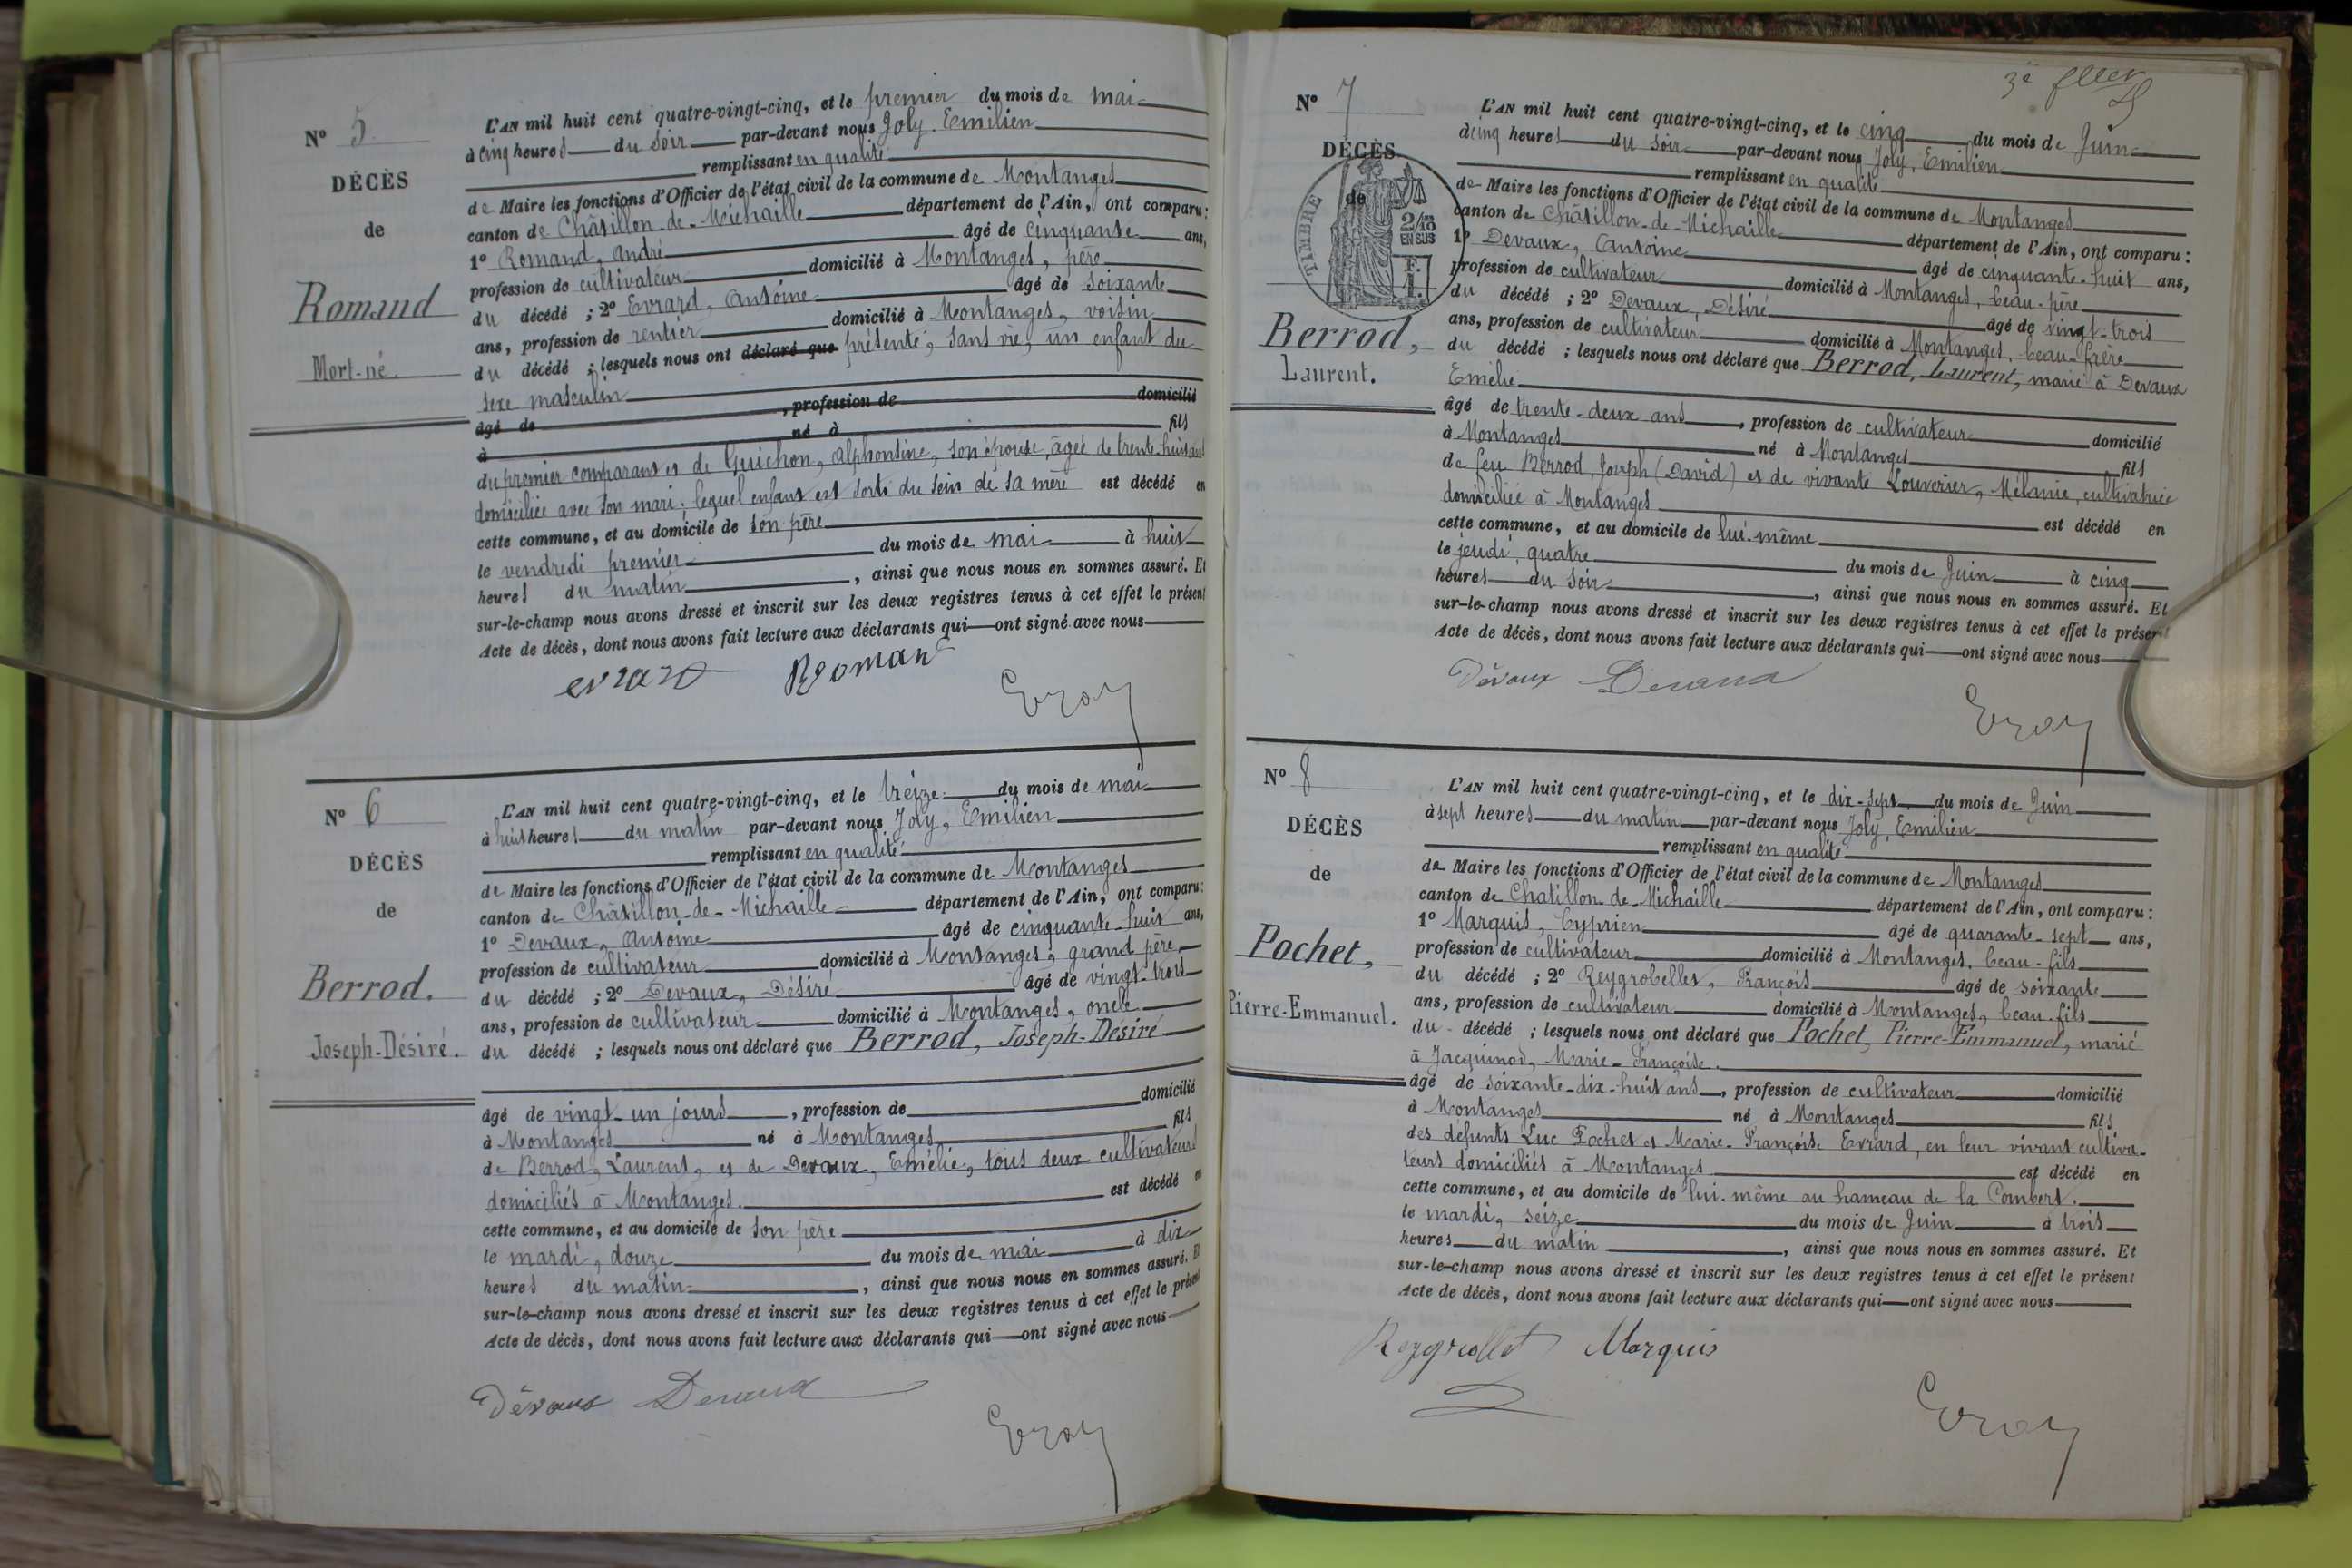 N° 5
DÉCÈS
de
Romand
Mort-né.
L'AN mil huit cent quatre-vingt-cinq, et le premier du mois de mai
à cinq heures du soir par-devant nous Joly, Emilien
remplissant en qualité
de Maire les fonctions d'Officier de l'état civil de la commune de Montanges
canton de Châtillon-de-Michaille département de l'Ain, ont comparu :
1° Romand, André âgé de cinquante ans,
profession de cultivateur domicilié à Montanges, père
du décédé ; 2° Evrard, Antoine âgé de soixante
ans, profession de rentier domicilié à Montanges, voisin
du décédé ; lesquels nous ont déclaré que présenté, sans vie, un enfant du
sexe masculin
âgé de , profession de domicilié
à né à fils
du premier comparant et de Guichon, Alphonsine, son épouse, âgée de trente-huit ans
domiciliée avec son mari ; lequel enfant est sorti du sein de sa mère est décédé en
cette commune, et au domicile de son père
le vendredi premier du mois de mai à huit
heures du matin , ainsi que nous nous en sommes assuré. Et
sur-le-champ nous avons dressé et inscrit sur les deux registres tenus à cet effet le présent
Acte de décès, dont nous avons fait lecture aux déclarants qui ont signé avec nous
evrard Romand
N° 6
DÉCÈS
de
Berrod.
Joseph-Désiré.
L'AN mil huit cent quatre-vingt-cinq, et le treize du mois de mai
à huit heures du matin par-devant nous Joly, Emilien
remplissant en qualité
de Maire les fonctions d'Officier de l'état civil de la commune de Montanges
canton de Châtillon-de-Michaille département de l'Ain, ont comparu :
1° Devaux, Antoine âgé de cinquante-huit ans,
profession de cultivateur domicilié à Montanges, grand père
du décédé ; 2° Devaux, Désiré âgé de vingt-trois
ans, profession de cultivateur domicilié à Montanges, oncle
du décédé ; lesquels nous ont déclaré que Berrod, Joseph-Désiré
âgé de vingt-un jours , profession de domicilié
à Montanges né à Montanges fils
de Berrod, Laurent, et de Devaux, Emélie, tous deux cultivateurs
domiciliés à Montanges. est décédé en
cette commune, et au domicile de son père
le mardi, douze du mois de mai à dix
heures du matin , ainsi que nous nous en sommes assuré. Et
sur-le-champ nous avons dressé et inscrit sur les deux registres tenus à cet effet le présent
Acte de décès, dont nous avons fait lecture aux déclarants qui ont signé avec nous
Dévaux Devaux
3e
N° 7
DÉCÈS
de
TIMBRE
2/10
EN SUS
F.
1.
Berrod,
Laurent.
L'AN mil huit cent quatre-vingt-cinq, et le cinq du mois de Juin
à cinq heures du soir par-devant nous Joly, Emilien
remplissant en qualité
de Maire les fonctions d'Officier de l'état civil de la commune de Montanges
canton de Châtillon-de-Michaille département de l'Ain, ont comparu :
1° Devaux, Antoine âgé de cinquante-huit ans,
profession de cultivateur domicilié à Montanges, beau-père
du décédé ; 2° Devaux, Désiré âgé de vingt-trois
ans, profession de cultivateur domicilié à Montanges, beau-frère
du décédé ; lesquels nous ont déclaré que Berrod, Laurent, marié à Devaux
Emélie
âgé de trente-deux ans , profession de cultivateur domicilié
à Montanges né à Montanges fils
de feu Berrod, Joseph (David) et de vivante Louvrier, Mélanie, cultivatrice
domiciliée à Montanges est décédé en
cette commune, et au domicile de lui-même
le jeudi, quatre du mois de Juin à cinq
heures du soir , ainsi que nous nous en sommes assuré. Et
sur-le-champ nous avons dressé et inscrit sur les deux registres tenus à cet effet le présent
Acte de décès, dont nous avons fait lecture aux déclarants qui ont signé avec nous
Dévaux Devaux
N° 8
DÉCÈS
de
Pochet,
Pierre-Emmanuel.
L'AN mil huit cent quatre-vingt-cinq, et le dix-sept du mois de Juin
à sept heures du matin par-devant nous Joly, Emilien
remplissant en qualité
de Maire les fonctions d'Officier de l'état civil de la commune de Montanges
canton de Chatillon-de-Michaille département de l'Ain, ont comparu :
1° Marquis, Cyprien âgé de quarante-sept ans,
profession de cultivateur domicilié à Montanges, beau-fils
du décédé ; 2° Reygrobellet, François âgé de soixante
ans, profession de cultivateur domicilié à Montanges, beau-fils
du décédé ; lesquels nous ont déclaré que Pochet, Pierre-Emmanuel, marié
à Jacquinod, Marie-Françoise.
âgé de soixante-dix-huit ans , profession de cultivateur domicilié
à Montanges né à Montanges fils
des défunts Luc Pochet et Marie-Françoise Evrard, en leur vivant cultiva-
teurs domiciliés à Montanges est décédé en
cette commune, et au domicile de lui-même au hameau de la Combert.
le mardi, seize du mois de Juin à trois
heures du matin , ainsi que nous nous en sommes assuré. Et
sur-le-champ nous avons dressé et inscrit sur les deux registres tenus à cet effet le présent
Acte de décès, dont nous avons fait lecture aux déclarants qui ont signé avec nous
Marquis